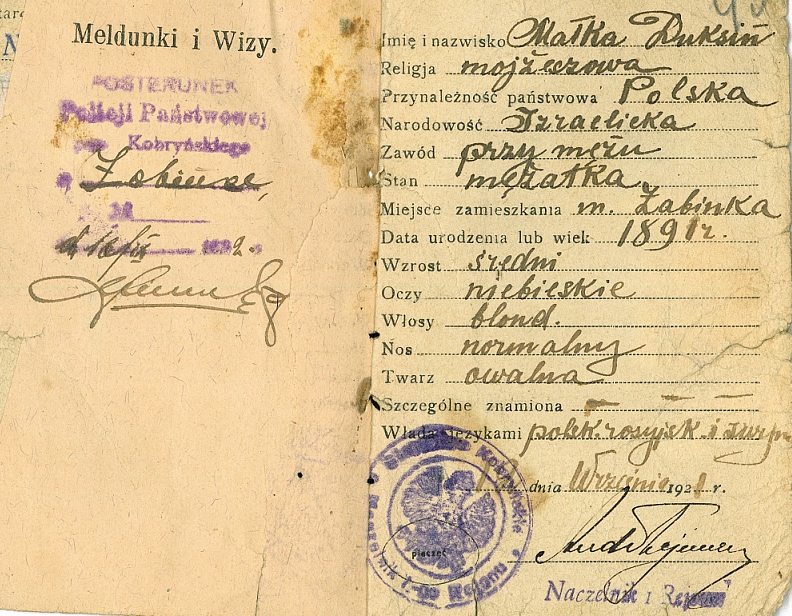 Meldunki i Wizy.
POSTERUNEK
Policji Państwowej
pow. Kobryńskiego
w Żabince,
192
Imię i nazwisko Małka Duksin
Religja mojżeszowa
Przynależność państwowa Polska
Narodowość Izraelicka
Zawód przy mężu
Stan mężatka
Miejsce zamieszkania m. Żabinka
Data urodzenia lub wiek 1891 r.
Wzrost średni
Oczy niebieskie
Włosy blond.
Nos normalny
Twarz owalna
Szczególne znamiona — — —
Włada językami polsk. rosyjsk i
dnia Września 1921 r.
pieczęć
Naczelnik I Rejonu